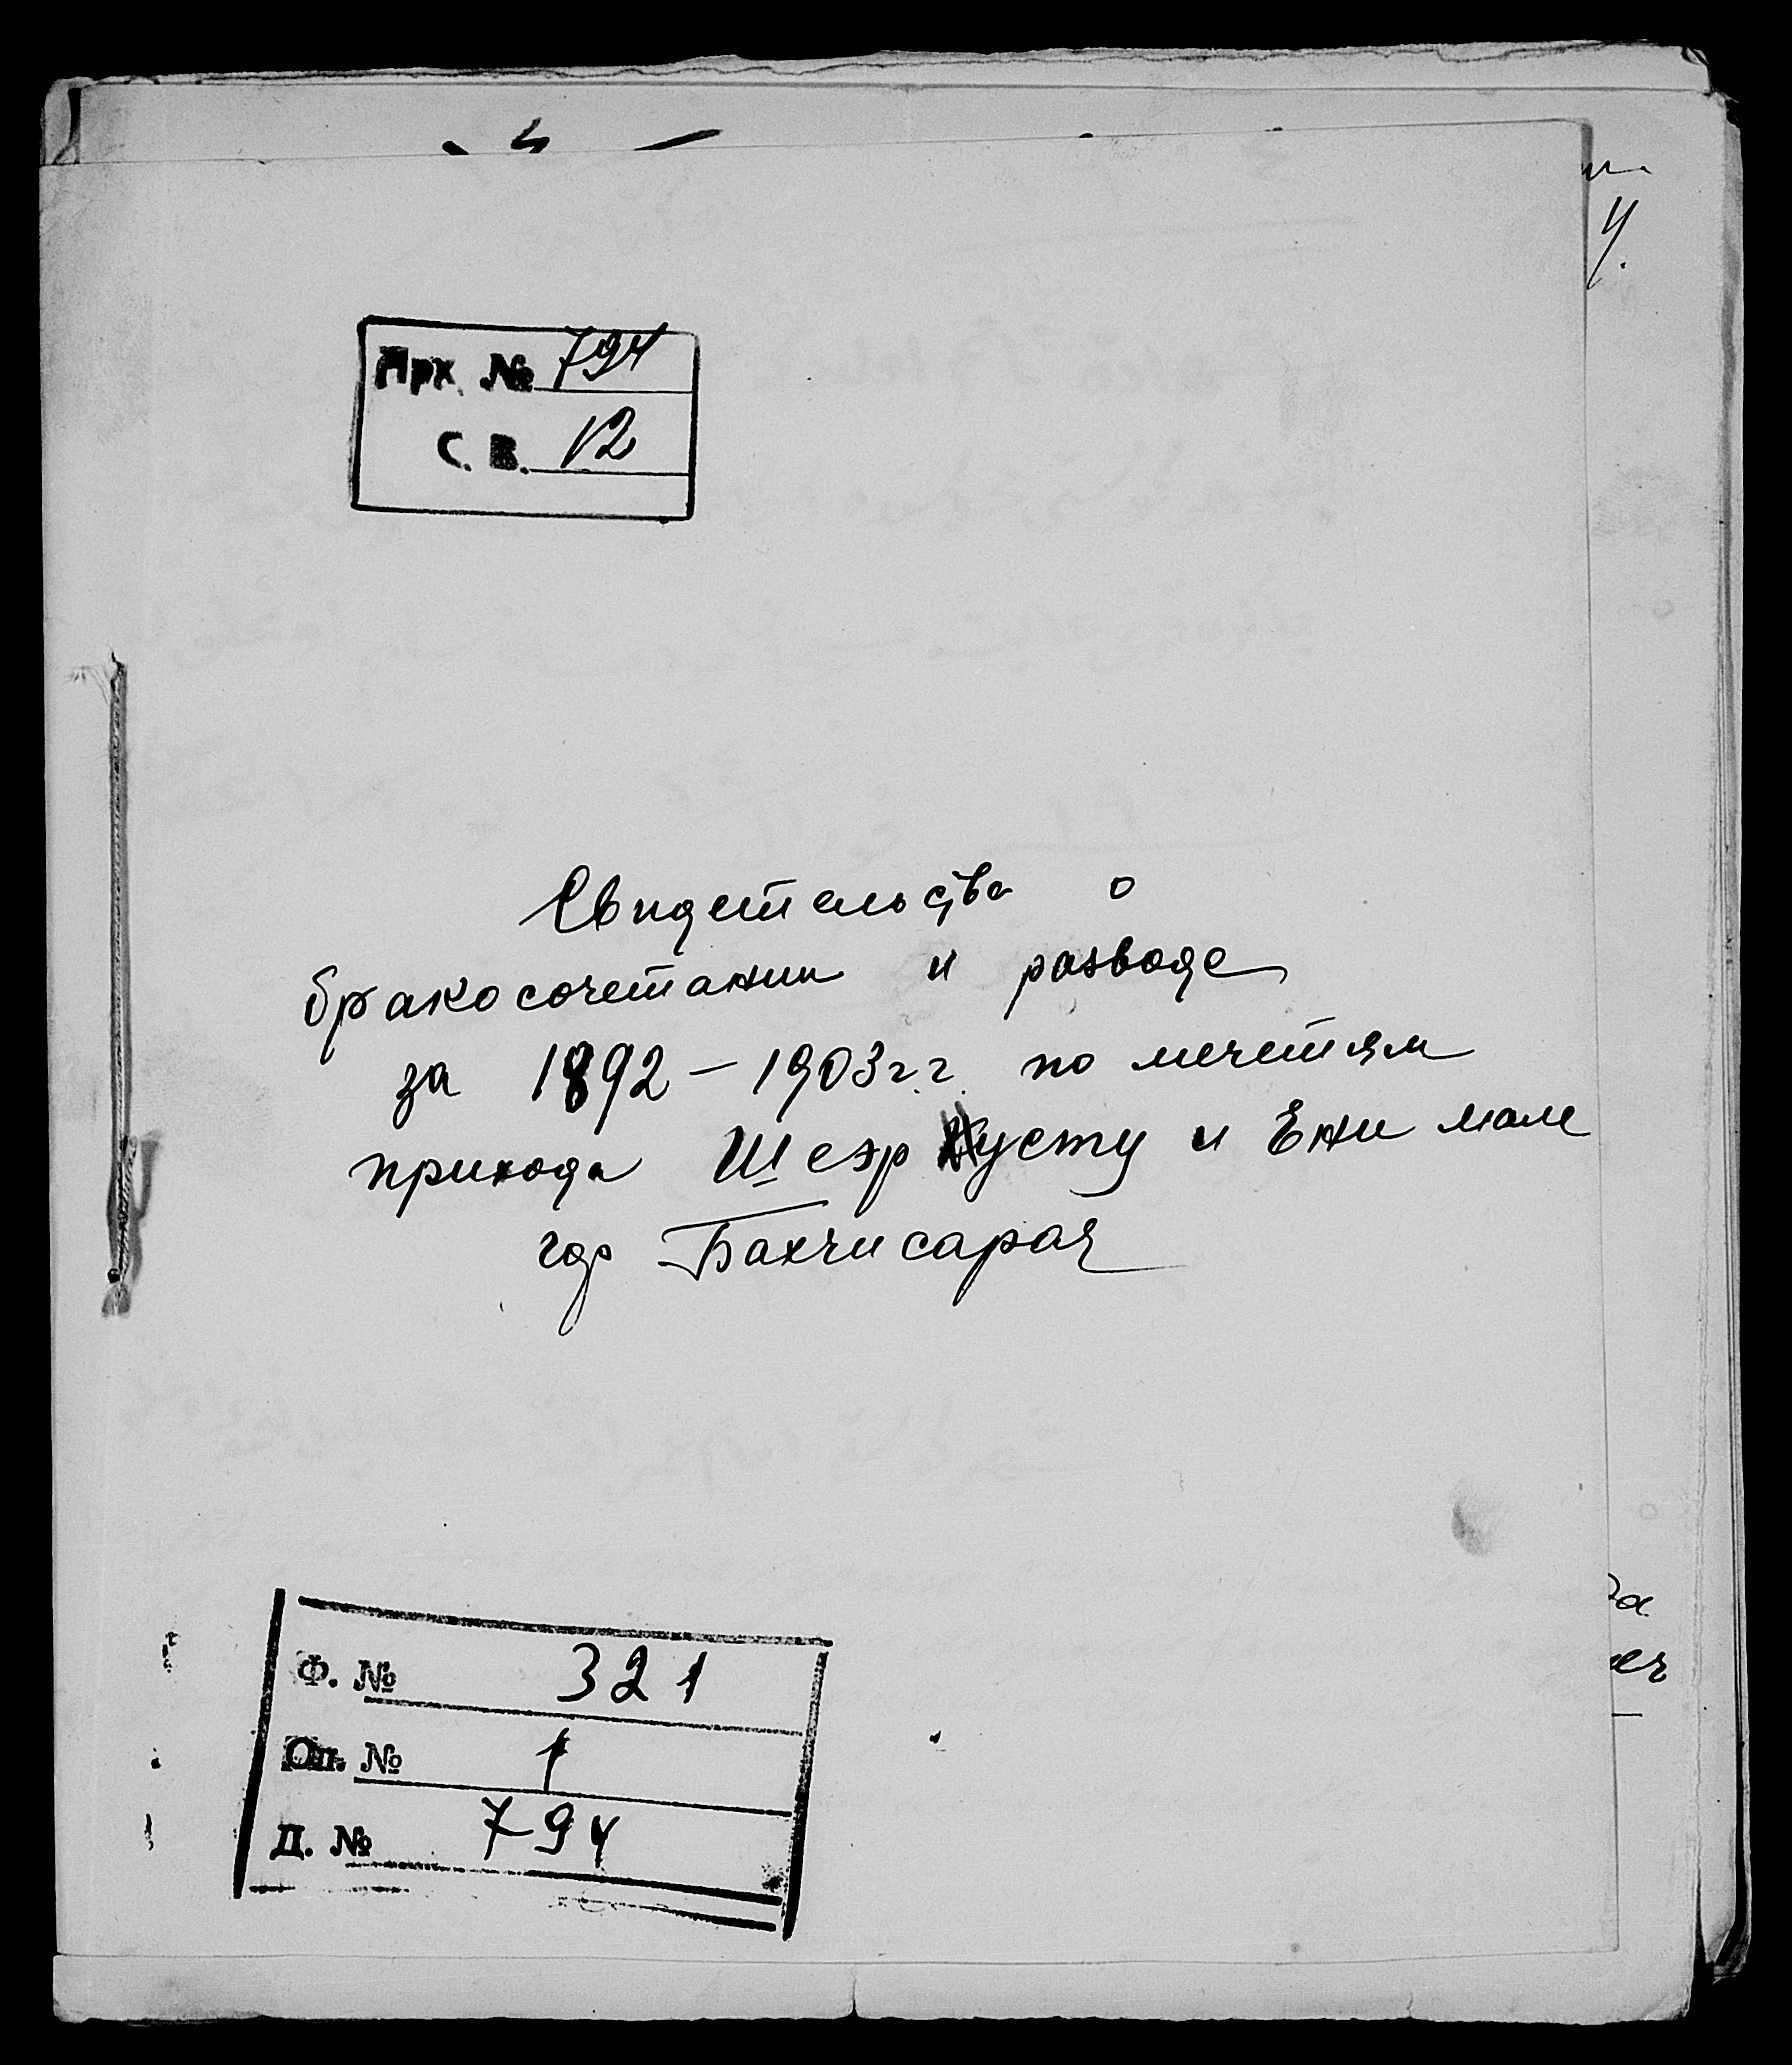 Арх. № 794
С. В. 12
Свидетельства о
бракосочетании и разводе
за 1892 – 1903 г.г. по мечетям
прихода Шеэр Кусту и Ени мале
гор Бахчисарая
Ф. № 321
Оп. № 1
Д. № 794